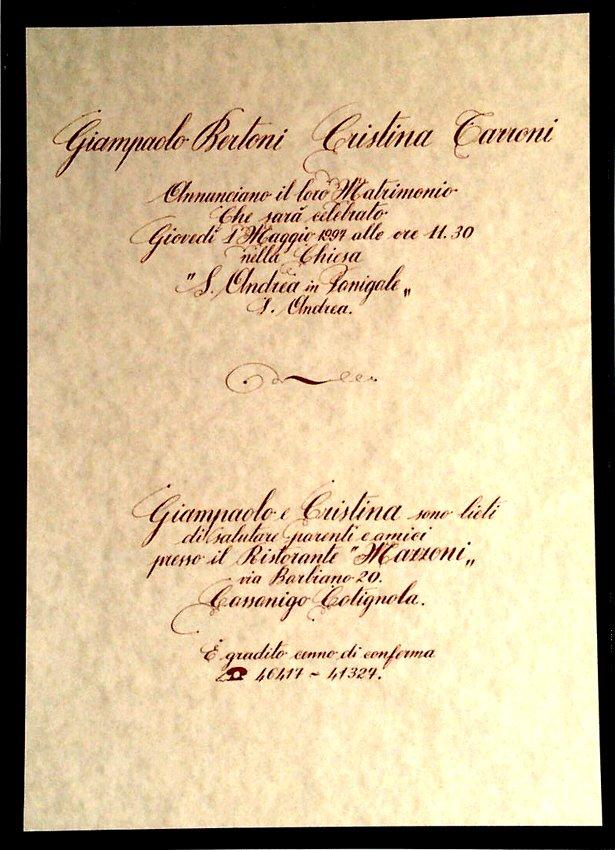 Giampaolo Bertoni Cristina Tarroni
Annunciano il loro Matrimonio
Che sarà celebrato
Giovedì 1 Maggio 1997 alle ore 11.30
nella Chiesa
"S. Andrea in Panigale„
S. Andrea.
Giampaolo e Cristina sono lieti
di salutare parenti e amici
presso il Ristorante "Mazzoni„
via Barbiano 20.
Cassanigo Cotignola.
È gradito cenno di conferma
☎ 40417 ~ 41327.